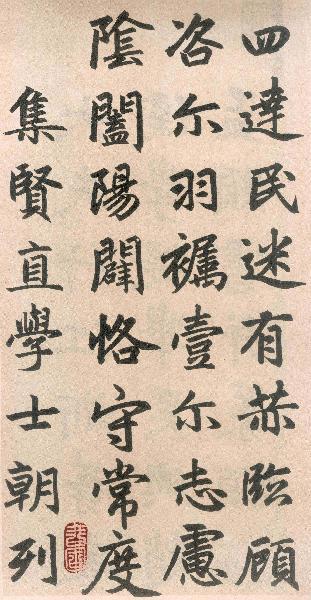 四達民迷有赫臨顧
咨尔羽襦壹尔志慮
陰闔陽闢恪守常度
集賢直學士朝列